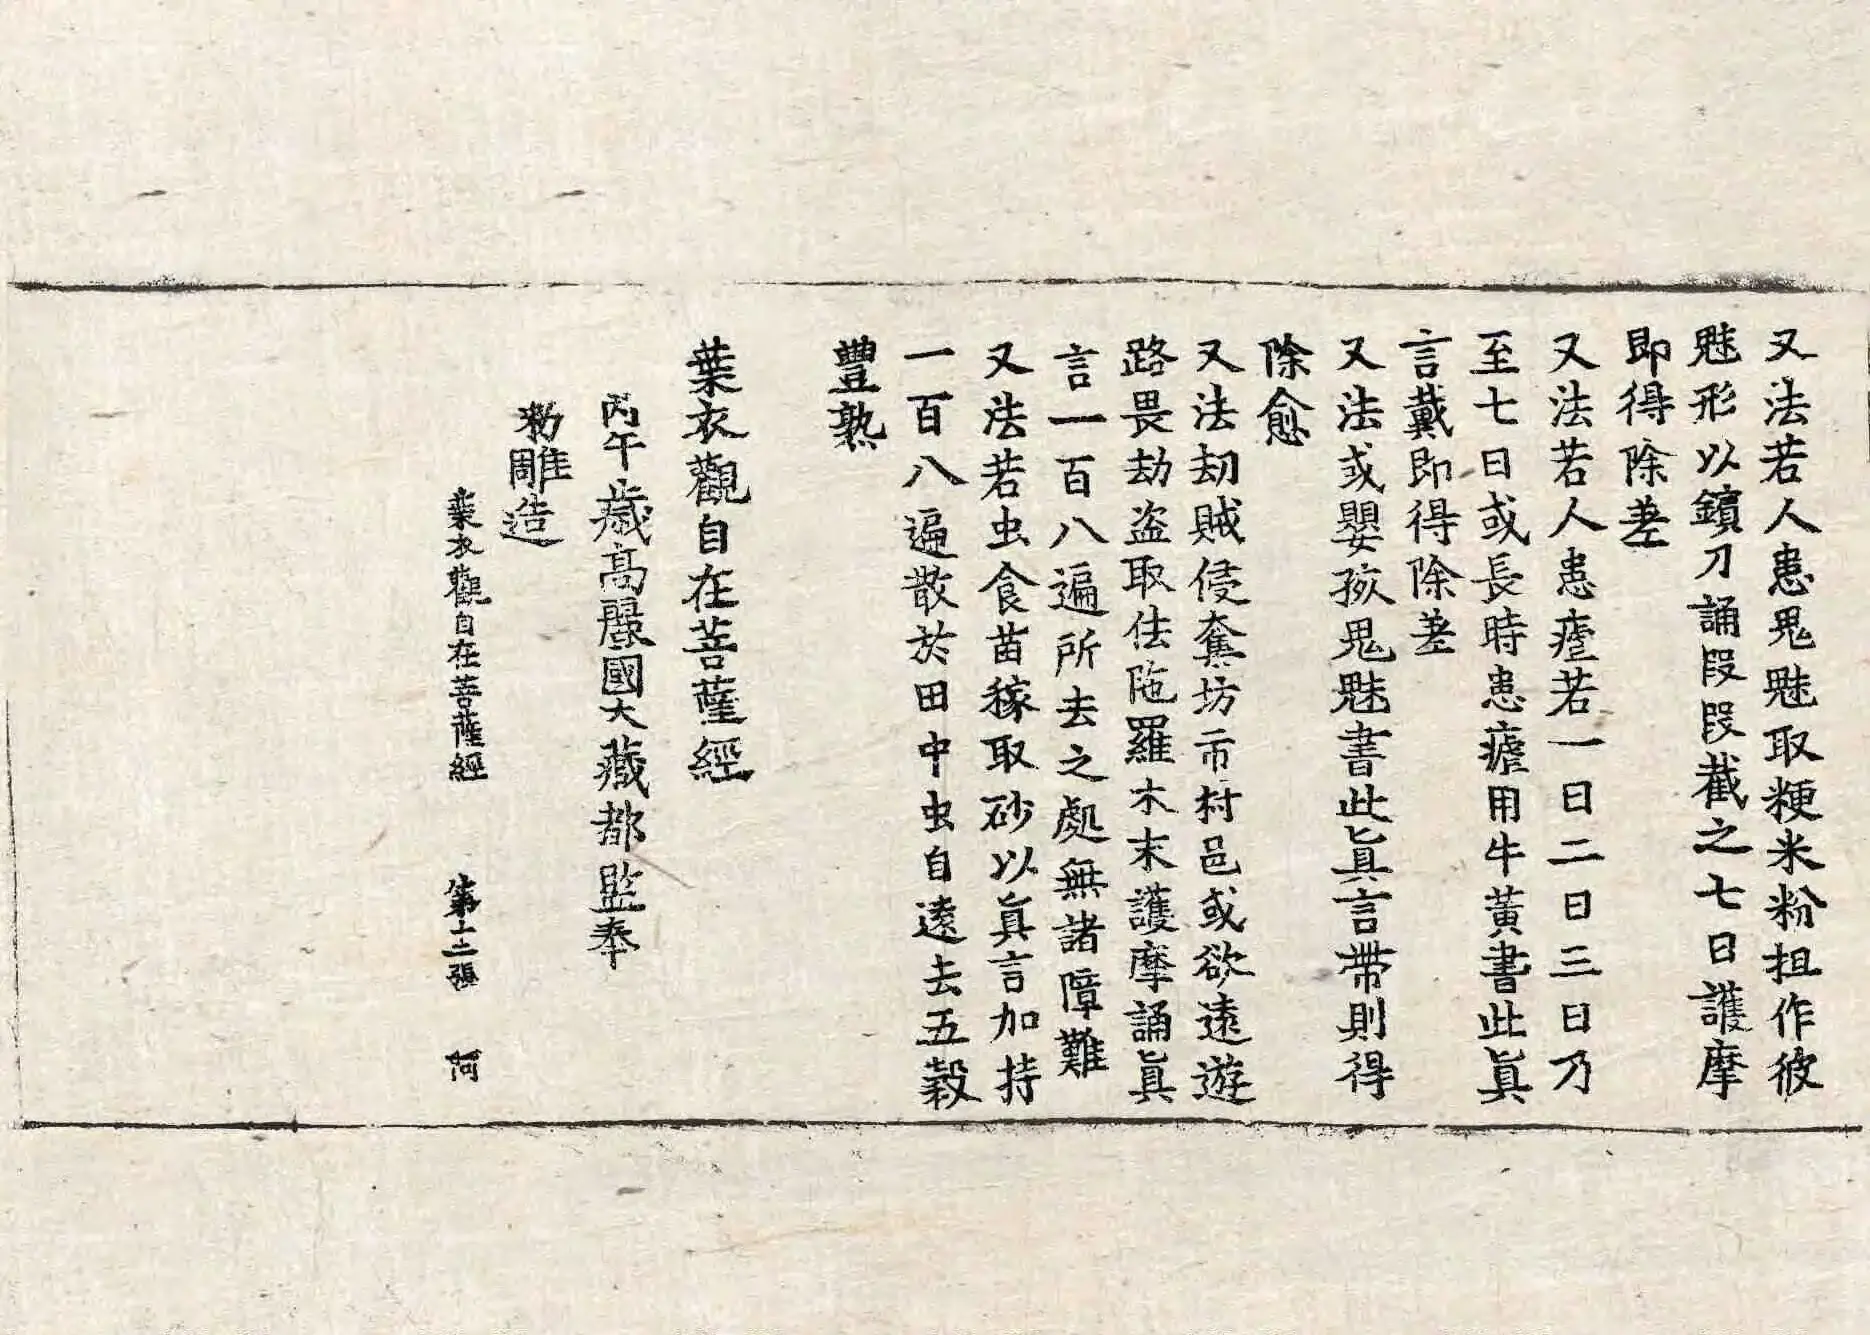 又法若人患鬼魅取粳米粉担作彼
魅形以鑌刀誦段段截之七日護摩
即得除差
又法若人患瘧若一日二日三日乃
至七日或長時患瘧用牛黃書此眞
言戴即得除差
又法或嬰孩鬼魅書此眞言帶則得
除愈
又法劫賊侵奪坊市村邑或欲遠遊
路畏劫盜取佉陁羅木末護摩誦眞
言一百八遍所去之處無諸障難
又法若虫食苗稼取砂以眞言加持
一百八遍散於田中虫自遠去五穀
豐熟
葉衣觀自在菩薩經
丙午歲高麗國大藏都監奉
勑雕造
葉衣觀自在菩薩經 第十二張 阿